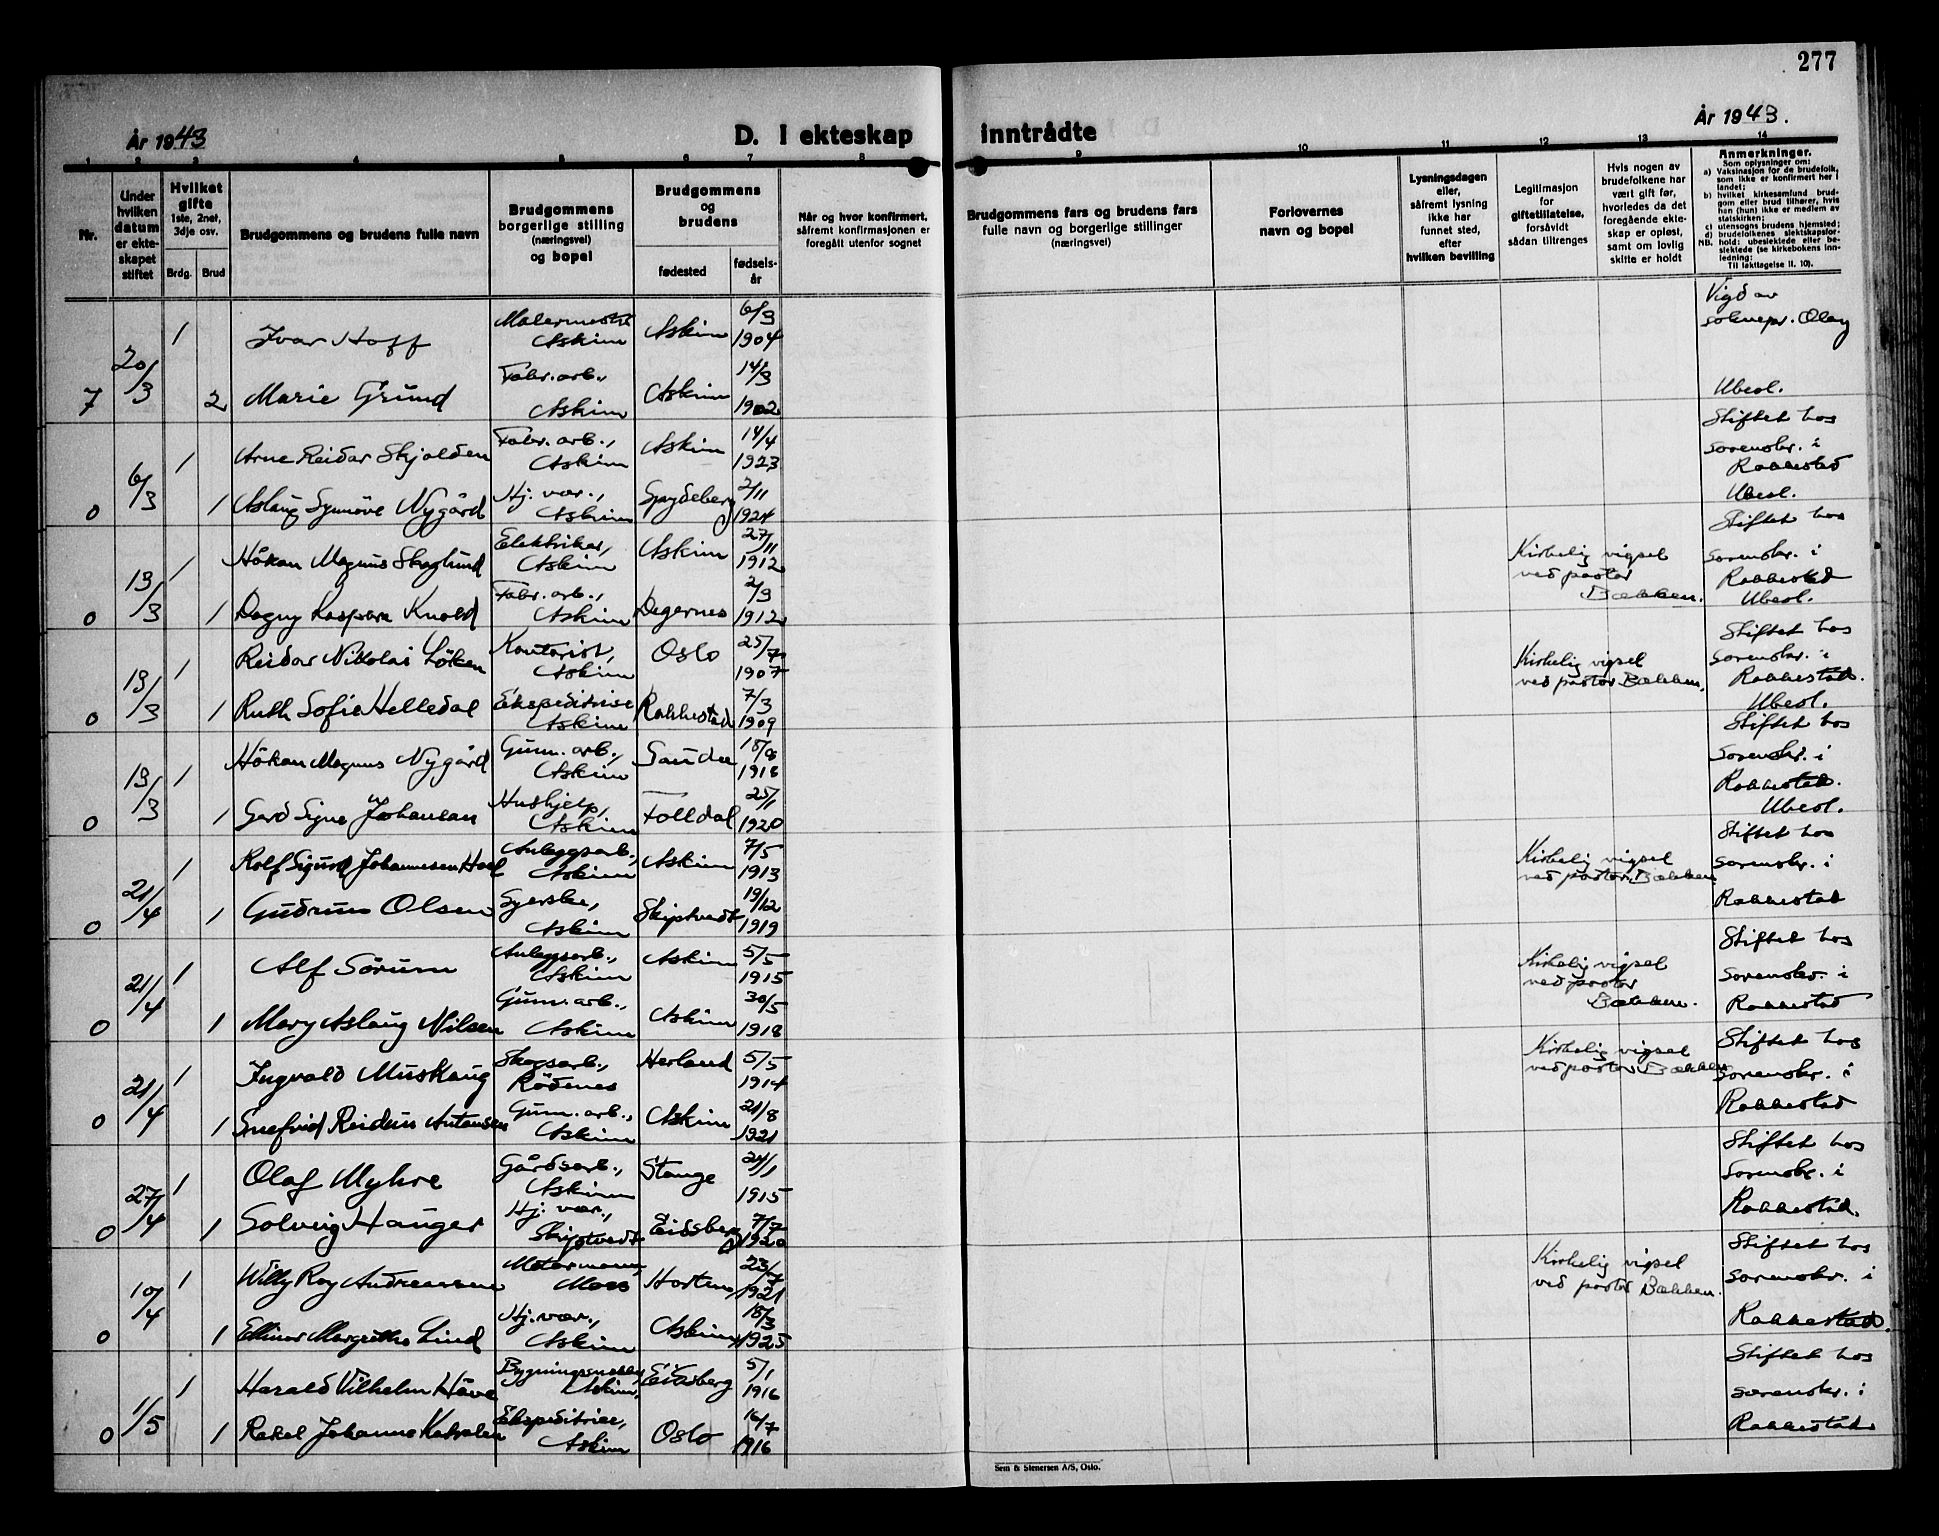 277
År 1943
D. I ekteskap inntrådte
År 1943.
1 2 3 4 5 6 7 8 9 10 11 12 13 14
Nr.
Under hvilken datum er ekteskapet stiftet
Hvilket gifte 1ste, 2net, 3dje osv.
Brdg. Brud
Brudgommens og brudens fulle navn
Brudgommens borgerlige stilling (næringsvei) og bopel
Brudgommens og brudens
fødested
fødselsår
Når og hvor konfirmert, såfremt konfirmasjonen er foregått utenfor sognet
Brudgommens fars og brudens fars fulle navn og borgerlige stillinger (næringsvei)
Forlovernes navn og bopel
Lysningsdagen eller, såfremt lysning ikke har funnet sted, efter hvilken bevilling
Legitimasjon for giftetillatelse, forsåvidt sådan tiltrenges
Hvis nogen av brudefolkene har vært gift før, hvorledes da det foregående ekteskap er opløst, samt om lovlig skifte er holdt
Anmerkninger.
Som oplysninger om:
a) Vaksinasjon for de brudefolk, som ikke er konfirmert her i landet;
b) hvilket kirkesamfund brudgom eller brud tilhører, hvis han (hun) ikke er medlem av statskirken;
c) utensogns brudens hjemsted;
d) brudefolkenes slektskapsforhold: ubeslektede eller beslektede (se kirkebokens innledning;
NB.
Til iakttagelse II. 10).
7 20/3 1 Ivar Hoff Malermester Askim Askim 6/3 1904 Vigd av soknepr. Olay
2 Marie Grund Fabr. arb., Askim Askim 14/3 1902 Ubesl.
0 6/3 1 Arne Reidar Skjolden Fabr. arb., Askim Askim 14/4 1923 Stiftet hos sorenskr. i Rakkestad
1 Aslaug Synnöve Nygård Hj. vær., Askim Spydeberg 2/11 1924 Ubesl.
0 13/3 1 Håkon Magnus Skoglund Elektriker, Askim Askim 27/11 1912 Kirkelig vigsel ved pastor Bækken. Stiftet hos sorenskr. i Rakkestad
1 Dagny Kaspara Knold Fabr. arb., Askim Degernes 2/3 1912 Ubesl.
0 13/3 1 Reidar Nikolai Löken Kontorist, Askim Oslo 25/7 1907 Kirkelig vigsel ved pastor Bækken. Stiftet hos sorenskr. i Rakkestad.
1 Ruth Sofie Helledal Ekspeditrise Askim Rakkestad 7/3 1909 Ubesl.
0 13/3 1 Håkon Magnus Nygård Gum. arb., Askim Sauda 18/8 1918 Stiftet hos sorenskr. i Rakkestad.
1 Gerd Signe Johansen Hushjelp, Askim Folldal 25/1 1920 Ubesl.
0 21/4 1 Rolf Sigurd Johannesen Anleggsarb., Askim Askim 7/5 1913 Kirkelig vigsel ved pastor Bækken Stiftet hos sorenskr. i Rakkestad
1 Gudrun Olsen Syerske, Askim Skiptvedt 19/12 1919
0 21/4 1 Alf Sörum Anleggsarb., Askim Askim 5/5 1915 Kirkelig vigsel ved pastor Bækken. Stiftet hos sorenskr. i Rakkestad
1 Mary Aslaug Nilsen Gum. arb., Askim Askim 30/5 1918
0 21/4 1 Ingvald Muskaug Skogsarb., Rödenes Herland 5/5 1914 Kirkelig vigsel ved pastor Bækken Stiftet hos sorenskr. i Rakkestad
1 Snefrid Reidun Antonsen Gum. arb., Askim Askim 21/8 1921
0 27/4 1 Olaf Myhre Gårdsarb., Askim Stange 24/1 1915 Stiftet hos sorenskr. i Rakkestad.
1 Solveig Hauger Hj. vær., Skiptvedt Eidsberg 7/7 1920
0 10/4 1 Willy Roy Andreassen Motormann, Moss Horten 1921 Kirkelig vigsel ved pastor Bækken. Stiftet hos sorenskr. i Rakkestad.
1 Ellinor Margrethe Lind Hj. vær., Askim Askim 18/3 1925
0 1/5 1 Harald Vilhelm Askim Eidsberg 5/1 1916 Stiftet hos sorenskr. i Rakkestad
1 Rakel Johanne Ekspeditrise, Askim Oslo 16/7 1916
Sem & Stenersen A/S, Oslo.